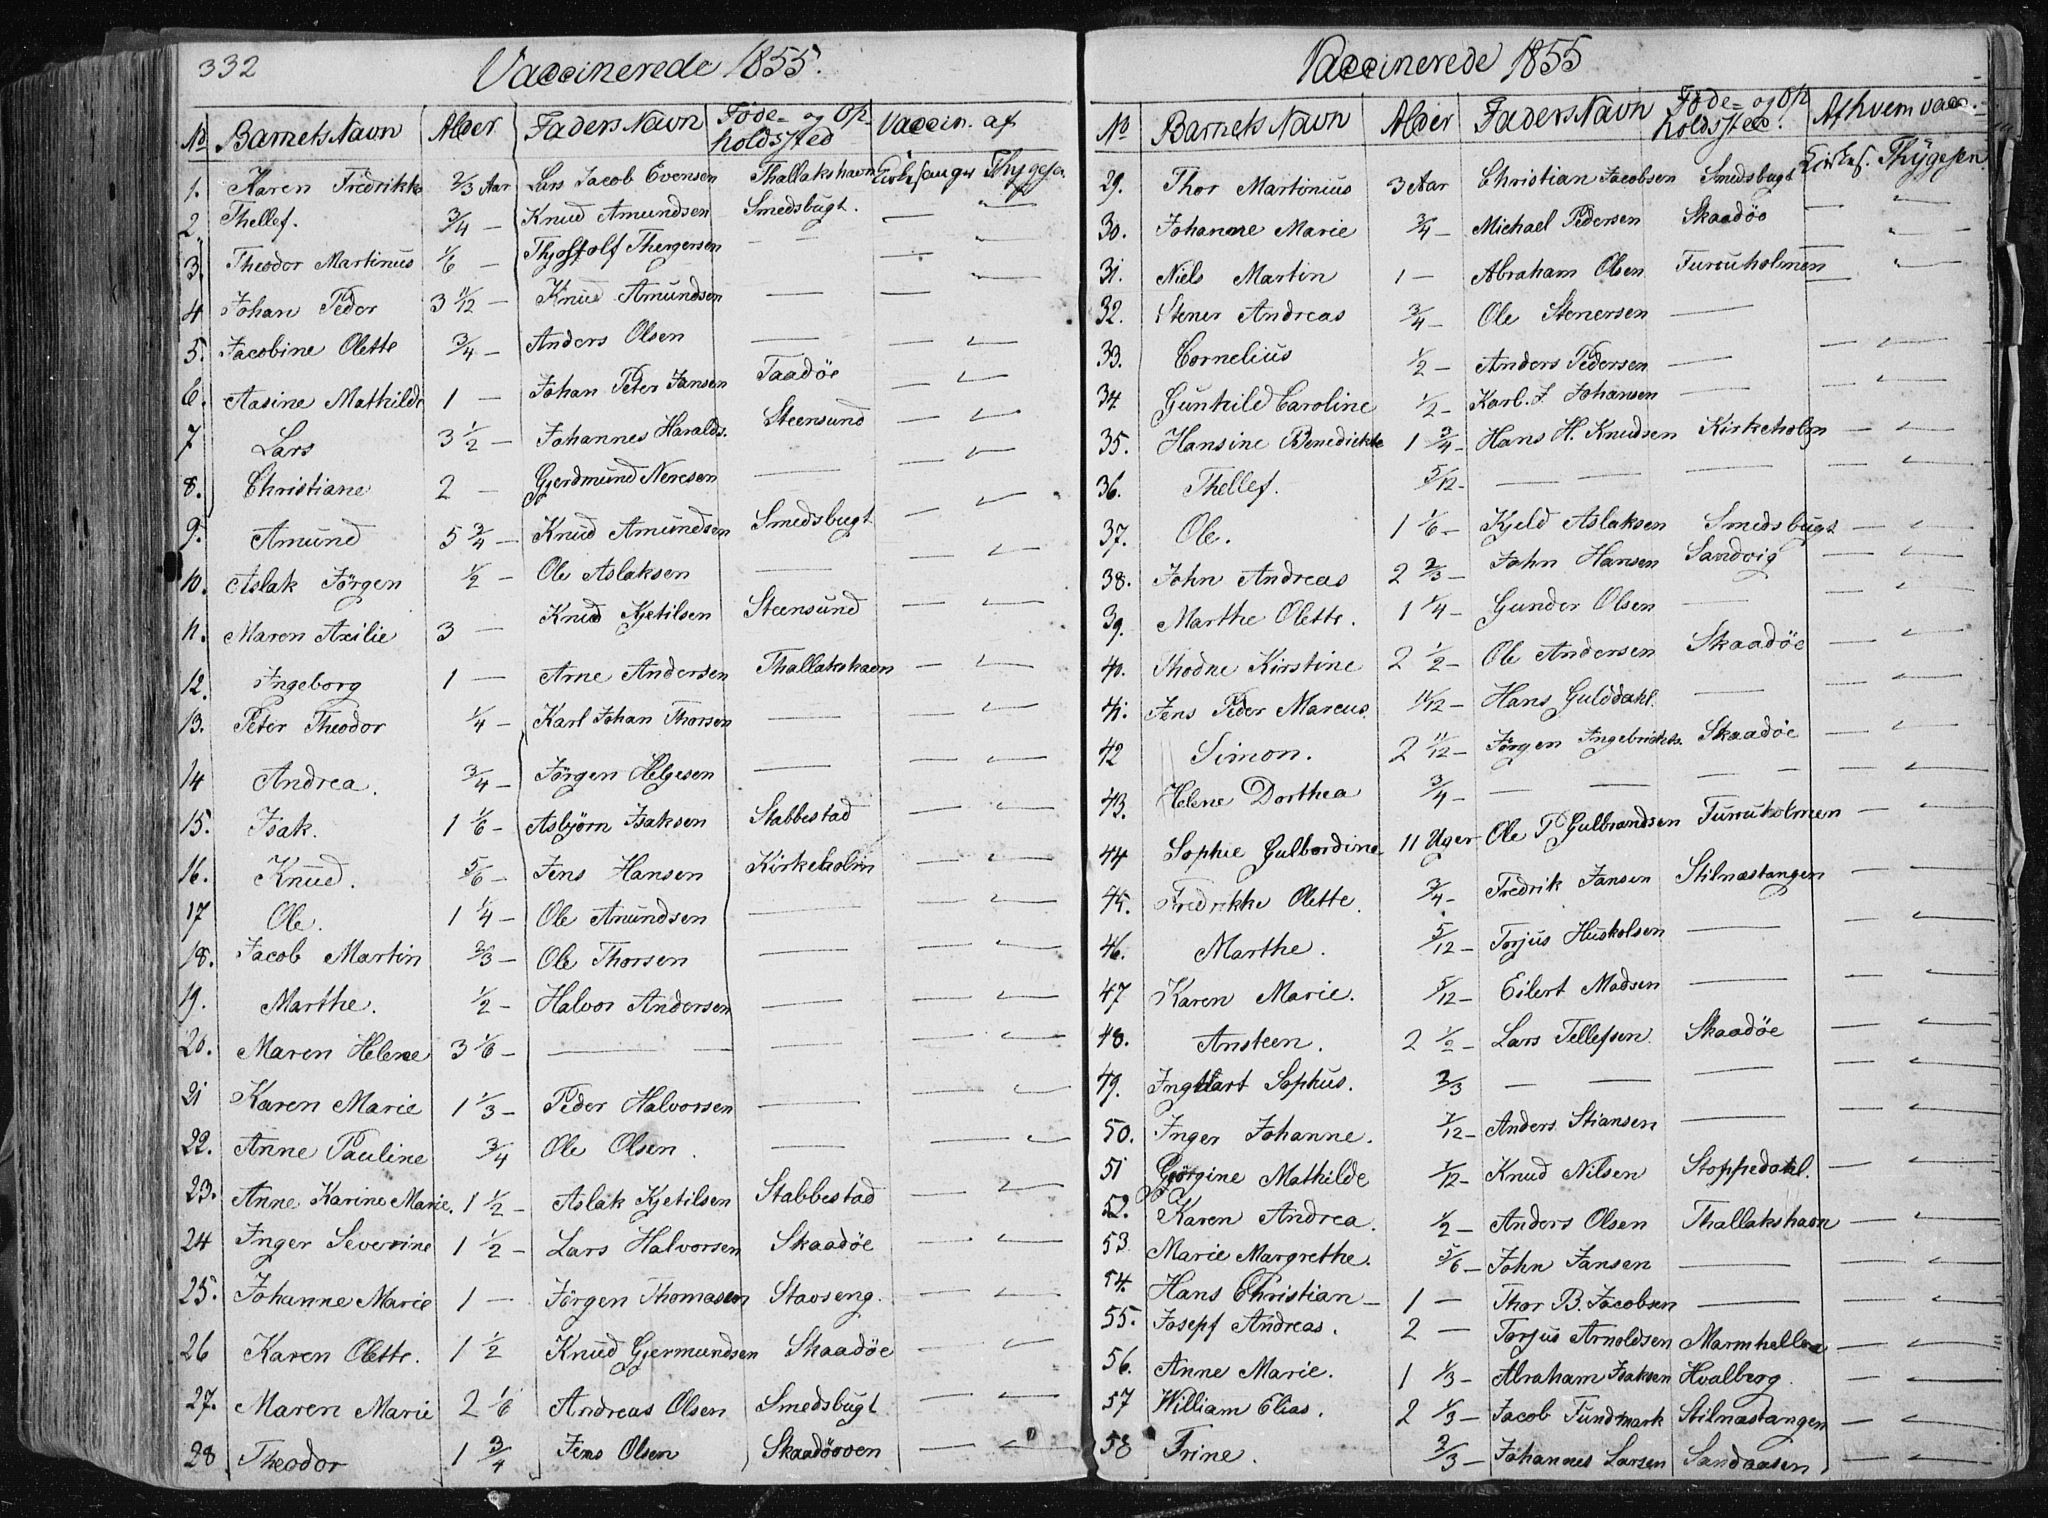 332
Vaccinerede 1855.
No Barnets Navn Alder Faders Navn Føde- og Op- Vaccin. af
holdssted
1. Karen Fredrikke 2/3 Aar Lars Jacob Evensen Thallakshavn Kirkesanger Thygesen
2. Thellef. 3/4 — Knud Amundsen Smedsbugt. — —
3. Theodor Martinus 1/6 — Thergersen — — — —
4 Johan Peder 3 11/12 — Knud Amundsen — — —
5. Jacobine Olette 3/4 — Anders Olsen — — —
6. Aasine Mathilde 1 — Johan Peter Jansen Taadøe — —
7 Lars 3 1/2 — Johannes Haralds. Steensund — —
8. Christiane 2 — Gjerdmund Neresen — — —
9. Amund 5 3/4 — Knud Amundsen Smedsbugt — —
10. Aslak Jörgen 1/2 — Ole Aslaksen — — —
11. Maren Axilie 3 — Knud Kjetilsen Steensund — —
12. Ingeborg 1 — Arne Andersen Thallakshavn — —
13. Peter Theodor 1/4 — Karl Johan Thorsen — — —
14 Andrea. 3/4 — Jörgen Helgesen — — —
15. Isak. 1 1/6 — Asbjörn Isaksen Stabbestad — —
16. Knud. 5/6 — Jens Hansen Kirkeholm — —
17 Ole. 1 1/4 — Ole Amundsen — — —
18. Jacob Martin 2/3 — Ole Thorsen — — —
19. Marthe. 1/2 — Halvor Andersen — — —
20. Maren Helene 3 1/6 — — — — — —
21 Karen Marie 1 1/3 — Peder Halvorsen — — —
22. Anne Pauline 3/4 Ole Olsen. — — —
23. Anne Karine Marie. 1 1/2 — Aslak Kjetilsen Stabbestad — —
24 Inger Severine 1 1/2 — Lars Halvorsen Skaadøe — —
25. Johanne Marie 1 — Jörgen Thomasen Stavseng. — —
26 Karen Olette. 1 1/2 Knud Gjermundsen Skaadøe — —
27. Maren Marie 2 1/6 Andreas Olsen Smedsbugt — —
28 Theodor 1 3/4 Jens Olsen Skaadøoven — —
Vaccinerede 1855
No Barnets Navn Alder Faders Navn Føde- og Op- Af hvem vacc.
holdssted.
29. Thor Martinius 3 Aar Christian Jacobsen Smedsbugt Kirkes. Thygesen
30. Johanne Marie 3/4 — Michael Pedersen Skaadøe — —
31. Niels Martin 1 — Abraham Olsen Furuholmen — —
32. Stener Andreas 3/4 — Ole Stenersen — — —
33. Cornelius 1/2 — Anders Pedersen — — —
34. Gunhild Caroline 1/2 — Karl. J. Johansen — — —
35. Hansine Benedickte 1 3/4 — Hans H. Knudsen Kirkeholm — —
36. Thellef. 5/12 — — — — — —
37. Ole. 1 1/6 — Kjeld Aslaksen Smedsbugt — —
38. John Andreas 2 2/3 — John Hansen Sandvig — —
39. Marthe Olette. 1 1/4 — Gunder Olsen — — —
40. Thodne Kirstine 2 1/2 — Ole Andersen Skaadøe — —
41. Jens Peder Marcus. 11/12 — Hans Gulddahl. — — —
42 Simon. 2 11/12 — Jörgen Ingebrickts. Skaadøe — —
43. Helene Dorthea 3/4 — — — — — — —
44 Sophie Gulbordine 11 Uger Ole T. Gulbrandsen Furruholmen — —
45. Fredrikke Olette. 3/4 — Fredrik Jansen Stilnæstangen — —
46. Marthe. 5/12 — Torjus Huskolsen — — —
47 Karen Marie. 5/12 — Eilert Madsen — — —
48. Ansteen. 2 1/2 — Lars Tellefsen. Skaadøe — —
49. Sophus. 2/3 — — — — —
50. Inger Johanne. 7/12 — Anders Stiansen — — —
51 Gjörgine Mathilde 1/12 — Knud Nilsen Stoppedahl. — —
52. Karen Andrea. 1/2 — Anders Olsen Thallakshavn — —
53 Marie Margrethe. 5/6 — John Jansen — — —
54. Hans Christian — 1 — Thor B. Jacobsen — — —
55. Josepf Andreas. 2 — Torjus Arnoldsen Marmhellea — —
56. Anne Marie. 1 1/3 — Abraham Isaksen Hvalberg. — —
57 William Elias. 2 1/3 — Jacob Tundmark Stilnæstangen — —
58 Trine. 2/3 — Johannes Larsen Sandaasen — —